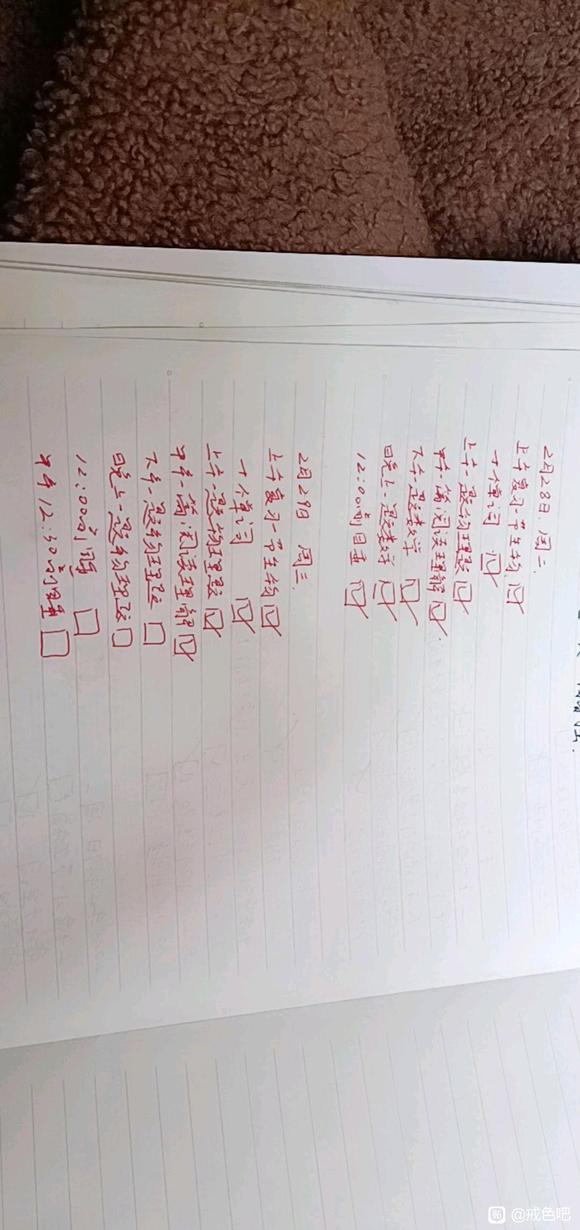 2月28日 周二
上午复习一节生物
十个单词
上午一题物理题
中午一篇阅读理解
下午一题数学
晚上一题数学
12:00前睡
2月29日 周三
上午复习一节生物
十个单词
上午一题物理题
中午一篇阅读理解
下午一题物理题
晚上一题物理题
12:00前睡
中午12:30前睡
贴 @戒色吧